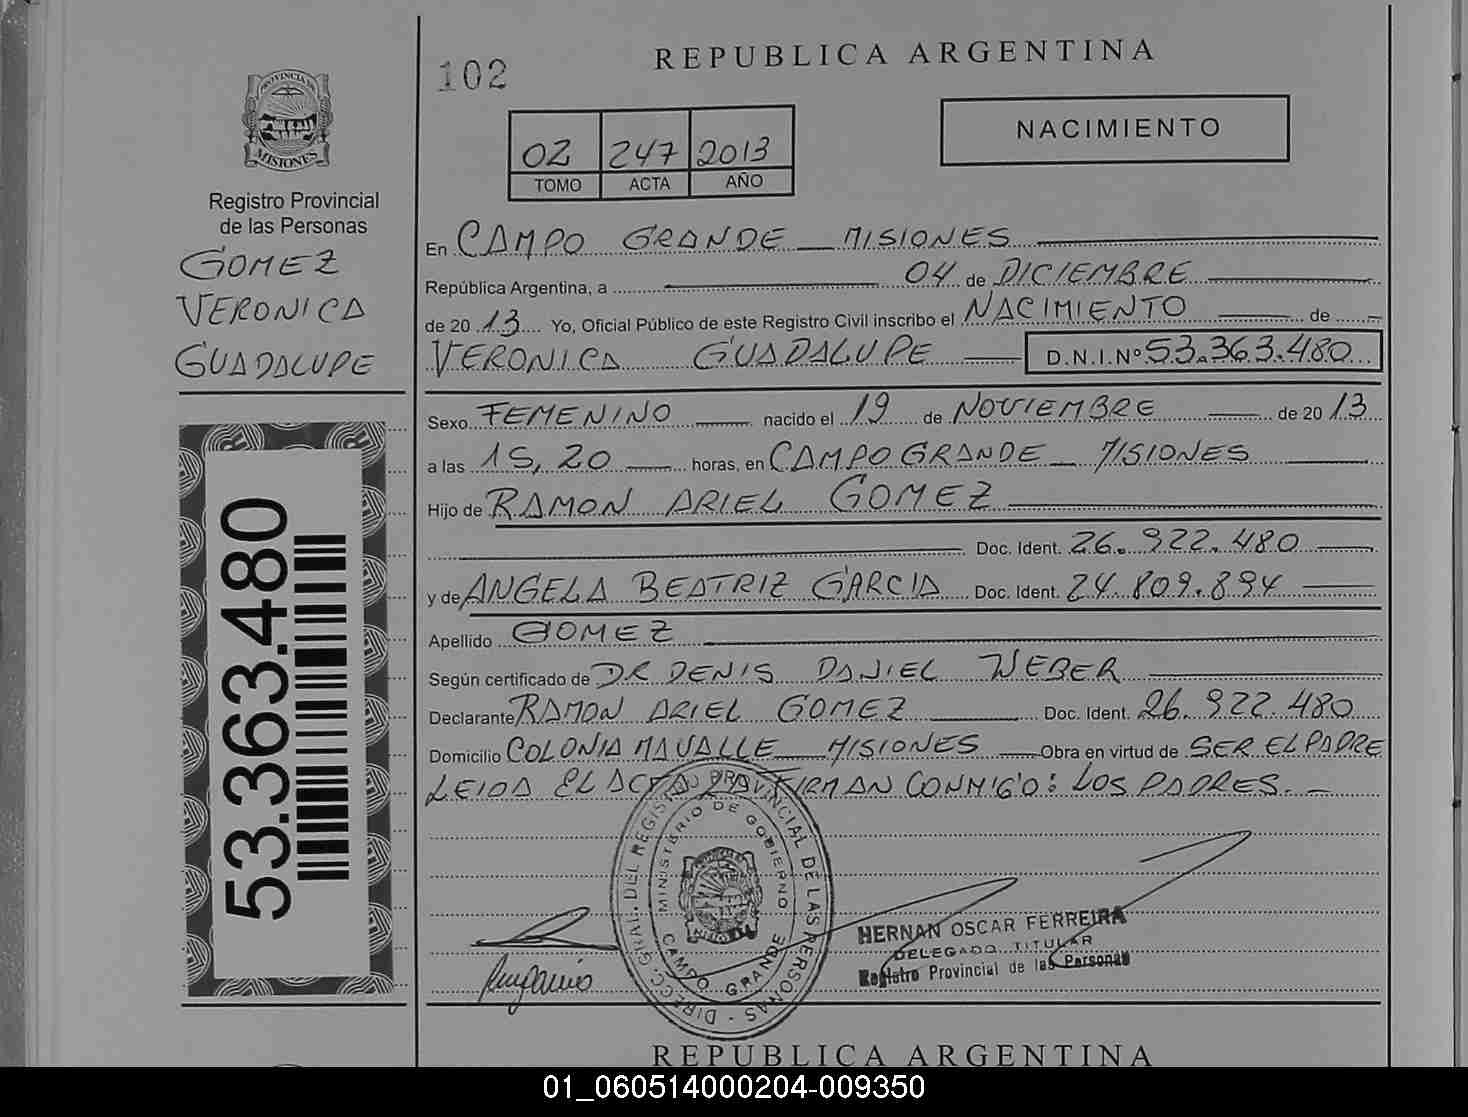 102
REPUBLICA ARGENTINA
PROVINCIA DE
MISIONES
Registro Provincial
de las Personas
GOMEZ
VERONICA
GUADALUPE
53.363.480
02 247 2013
TOMO ACTA AÑO
NACIMIENTO
En CAMPO GRANDE _ MISIONES
República Argentina, a 04 de DICIEMBRE
de 20 13 Yo, Oficial Público de este Registro Civil inscribo el NACIMIENTO de
VERONICA GUADALUPE D.N.I.Nº 53.363.480
Sexo FEMENINO nacido el 19 de NOVIEMBRE de 20 13
a las 15,20 horas, en CAMPO GRANDE _ MISIONES
Hijo de RAMON ARIEL GOMEZ
Doc. Ident. 26.922.480
y de ANGELA BEATRIZ GARCIA Doc. Ident. 24.809.894
Apellido GOMEZ
Según certificado de DR DENIS DANIEL WEBER
Declarante RAMON ARIEL GOMEZ Doc. Ident. 26.922.480
Domicilio COLONIA MAVALLE _ MISIONES Obra en virtud de SER EL PADRE
LEIDA EL ACTA LA FIRMAN CONMIGO: LOS PADRES.
DIRECC. GRAL. DEL REGISTRO PROVINCIAL DE LAS PERSONAS -
MINISTERIO DE GOBIERNO
CAMPO GRANDE
HERNAN OSCAR FERREIRA
DELEGADO TITULAR
Registro Provincial de las Personas
REPUBLICA ARGENTINA
01_060514000204-009350